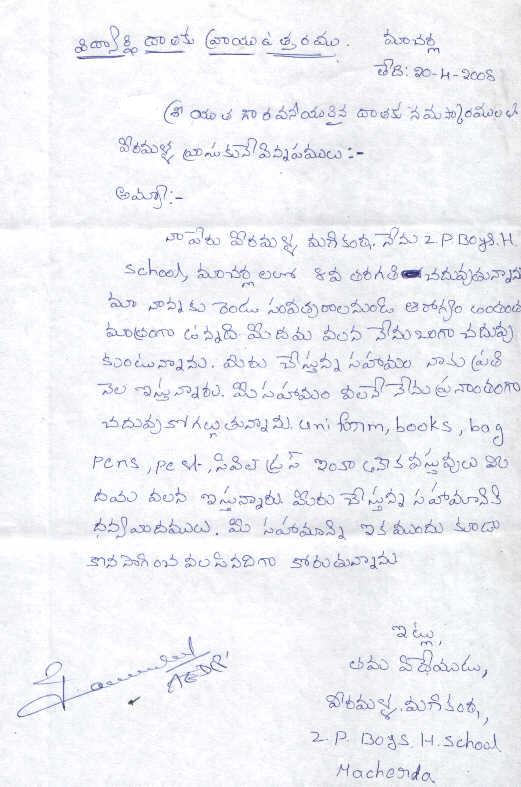 విద్యార్థి దాతకు వ్రాయు ఉత్తరము. మాచర్ల
తేది: 20-4-2008
శ్రీయుత గౌరవనీయులైన దాతకు నమస్కారములతో
వీరమళ్ళ వ్రాసుకునే విన్నపములు:-
అమ్మా:-
నా పేరు వీరమళ్ళ మణికంఠ. నేను Z.P Boys. H.
School, మాచర్ల లలో 8వ తరగతి చదువుతున్నాను
మా నాన్నకు రెండు సంవత్సరాలనుండి ఆరోగ్యం అంతంత
మాత్రంగా ఉన్నది మీ దయ వలన నేను బాగా చదువు
కుంటున్నాను. మీరు చేస్తున్న సహాయం నాకు ప్రతి
నెల ఇస్తున్నారు. మీ సహాయం వలనే నేను ప్రశాంతంగా
చదువుకోగల్గుతున్నాను. uniform, books, bag
pens, పేస్ట్, సివిల్ డ్రస్ ఇంకా అనేక వస్తువులు మీ
దయ వలన ఇస్తున్నారు. మీరు చేస్తున్న సహాయానికి
ధన్యవాదములు. మీ సహాయాన్ని ఇక ముందు కూడా
కొనసాగించవలసినదిగా కోరుతున్నాను
ఇట్లు,
తమ విధేయుడు,
వీరమళ్ళ. మణికంఠ,
Z. P. Boys. H. School
Macherla